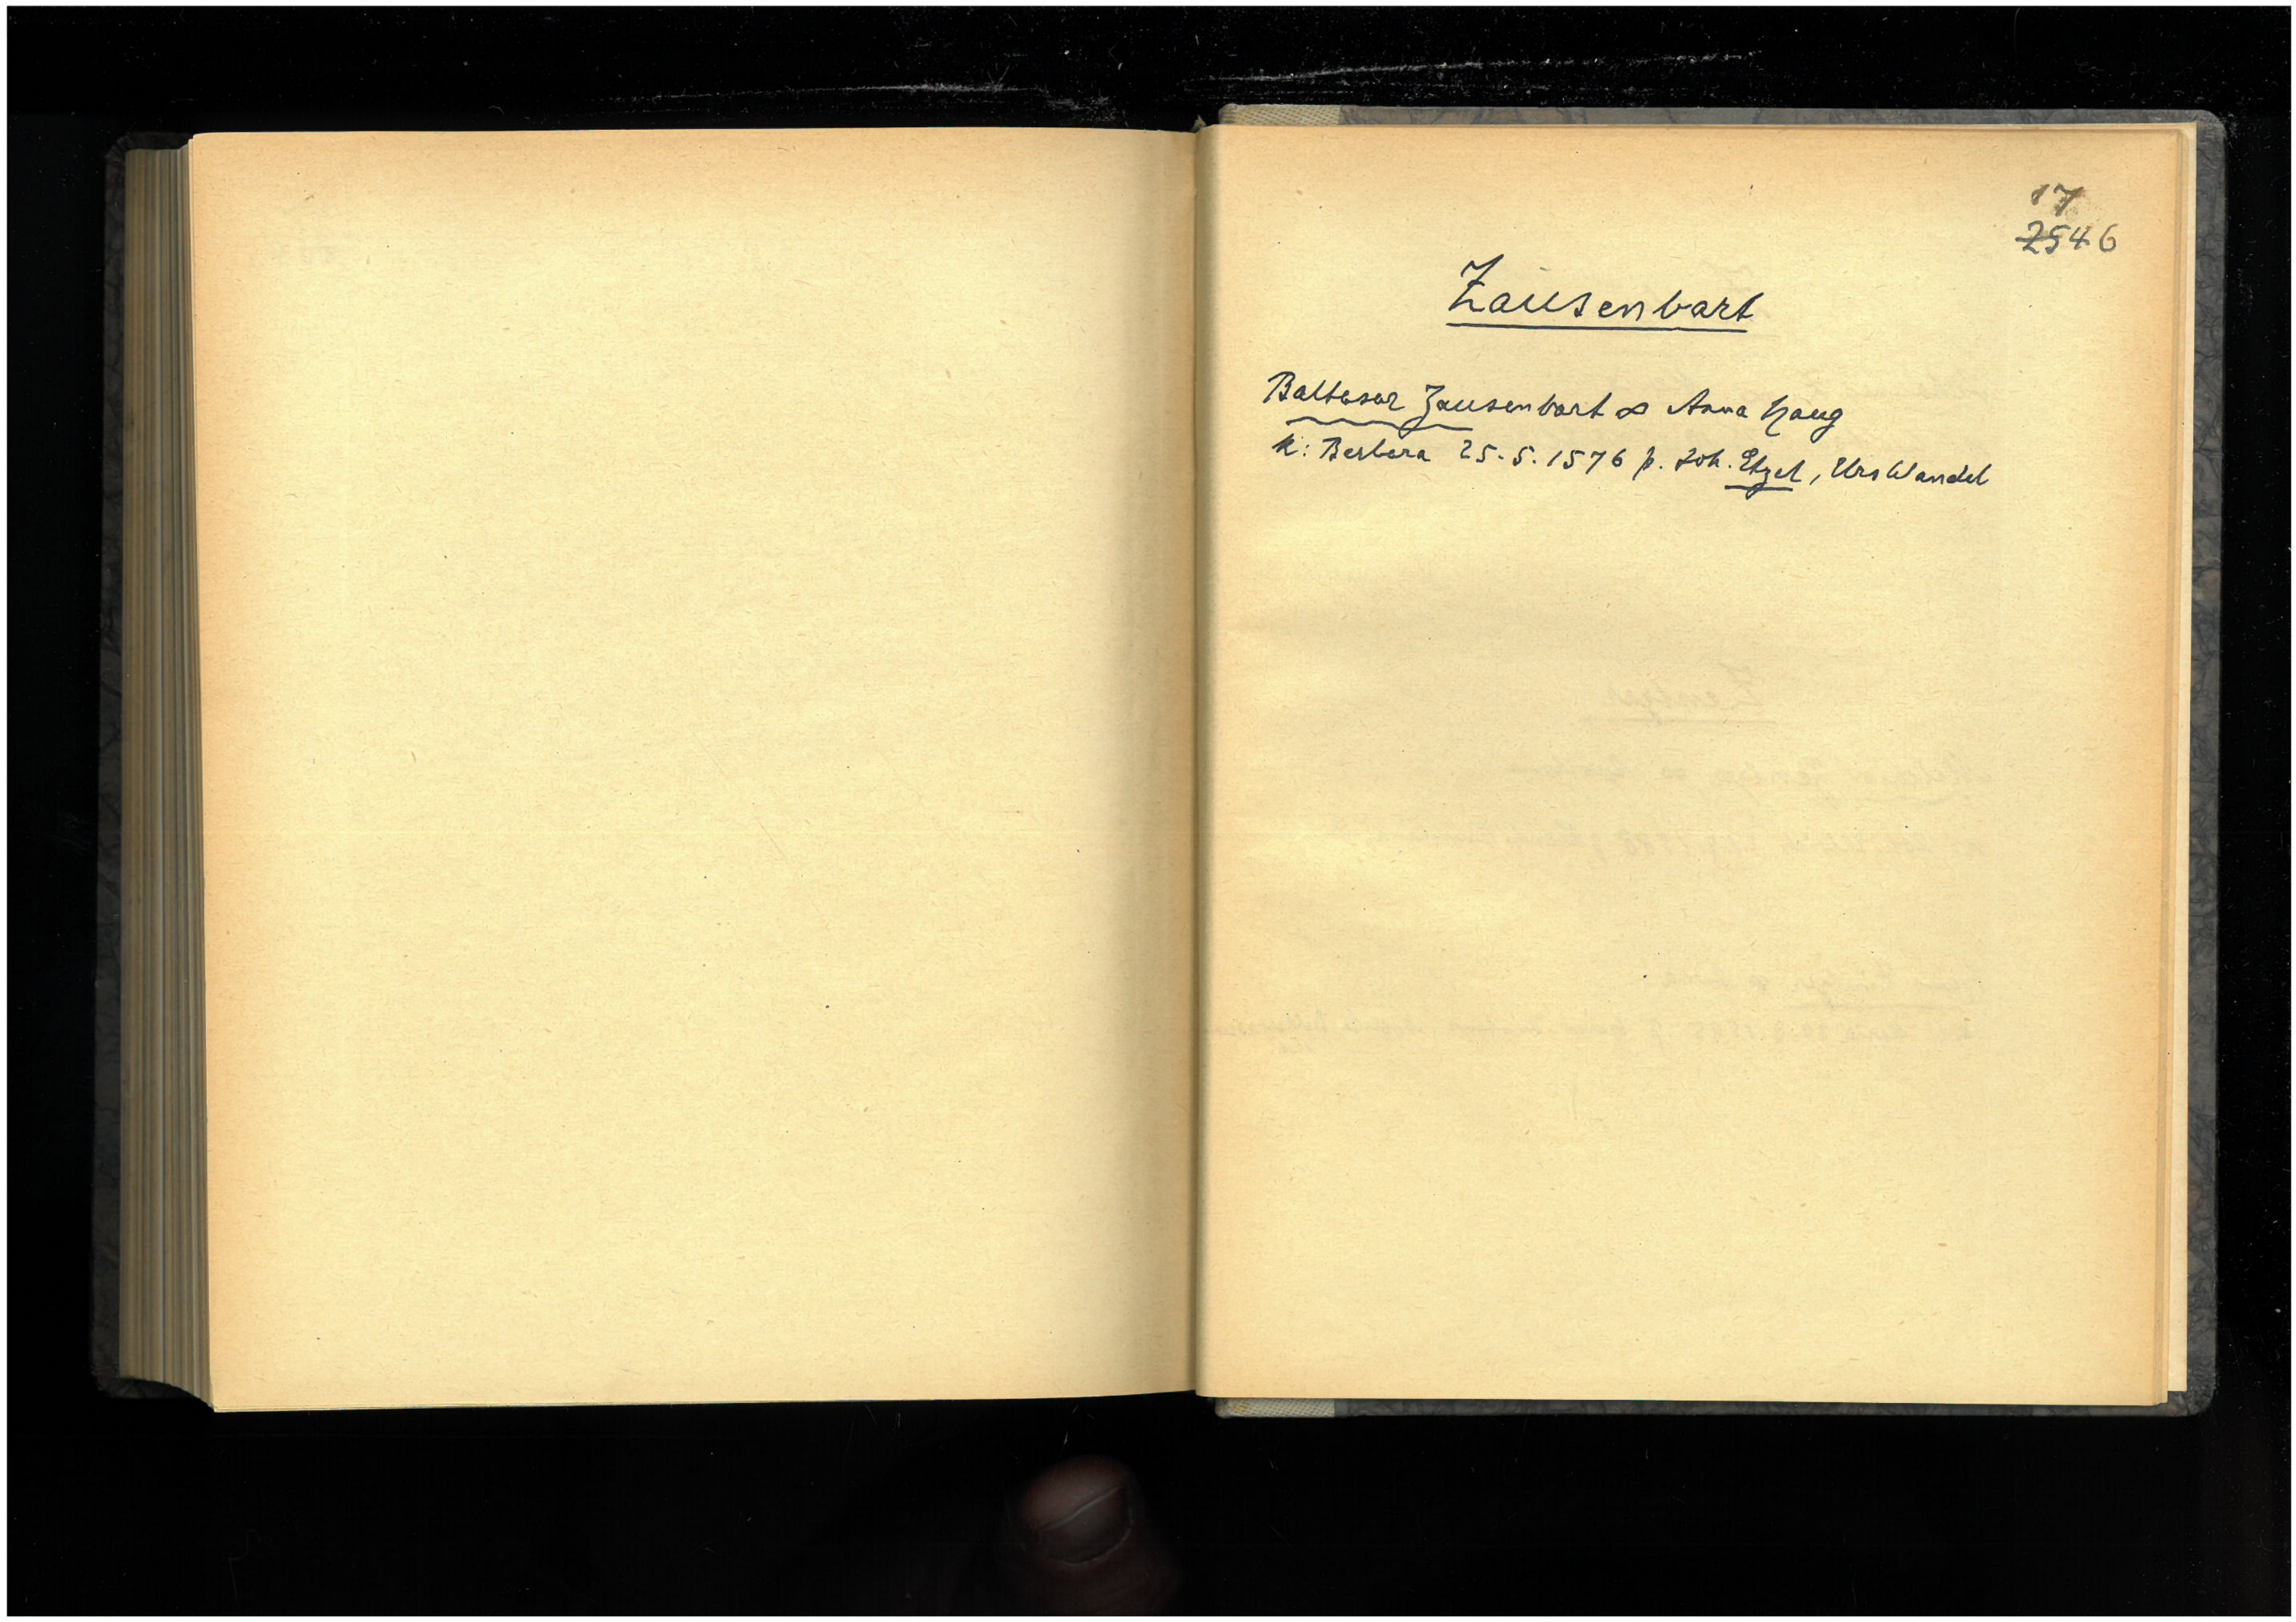 17
2546
Zausenbart
Baltasar Zausenbart ∞ Anna Haug
K: Barbara 25.5.1576 p. Joh. Etzel, Urs Wandel